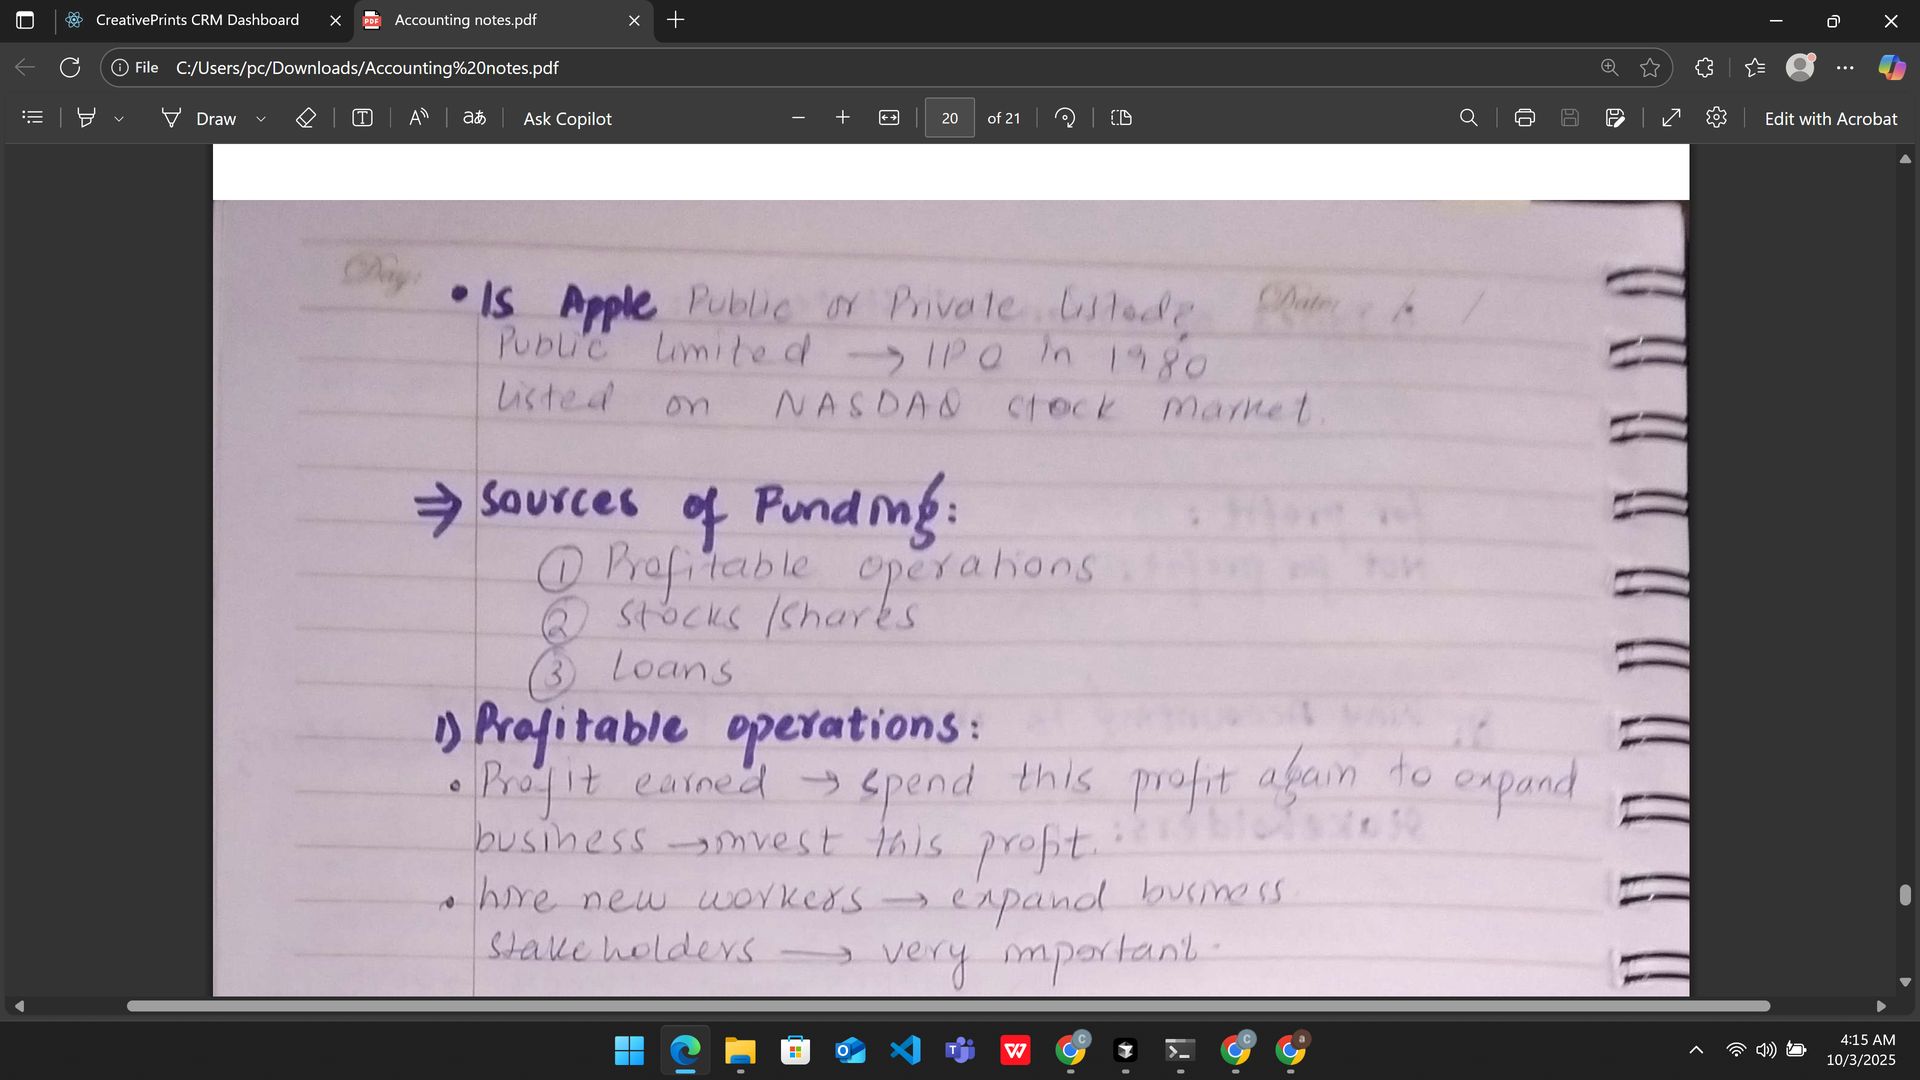 CreativePrints CRM Dashboard
Accounting notes.pdf
File C:/Users/pc/Downloads/Accounting%20notes.pdf
Draw
Ask Copilot
20 of 21
Edit with Acrobat
Day:
Date:
• Is Apple Public or Private listed?
Public limited → IPO in 1980
listed on NASDAQ stock market.
⇒ Sources of Funding:
① Profitable operations
② Stocks /Shares
③ Loans
1) Profitable operations:
• Profit earned → spend this profit again to expand
business → invest this profit.
• hire new workers → expand business
stakeholders → very important.
4:15 AM
10/3/2025